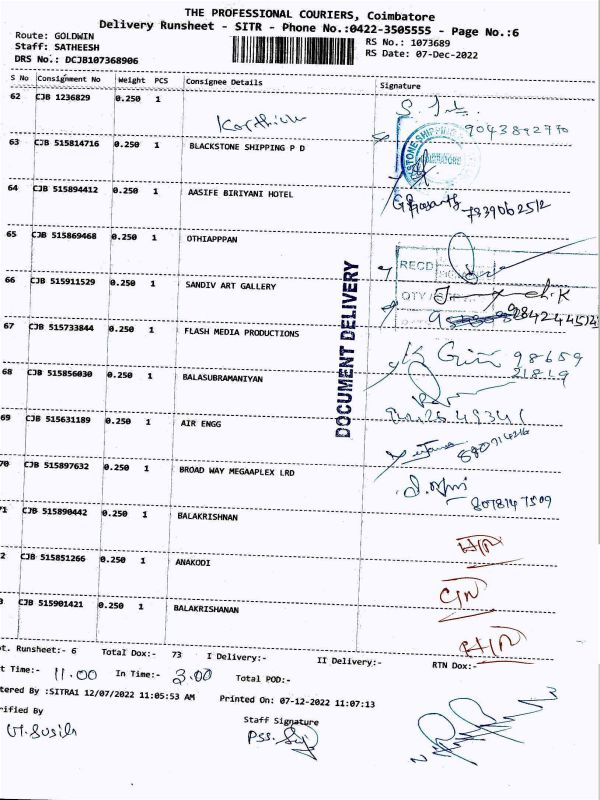 THE PROFESSIONAL COURIERS, Coimbatore
Delivery Runsheet - SITR - Phone No.:0422-3505555 - Page No.:6
Route: GOLDWIN
RS No.: 1073689
Staff: SATHEESH
RS Date: 07-Dec-2022
DRS No.: DCJB107368906
S No Consignment No Weight PCS Consignee Details Signature
62 CJB 1236829 0.250 1
Karthick
9043892770
63 CJB 515814716 0.250 1 BLACKSTONE SHIPPING P D
64 CJB 515894412 0.250 1 AASIFE BIRIYANI HOTEL
7339062512
65 CJB 515869468 0.250 1 OTHIAPPPAN
RECD
66 CJB 515911529 0.250 1 SANDIV ART GALLERY
QTY
67 CJB 515733844 0.250 1 FLASH MEDIA PRODUCTIONS
9842244512
DOCUMENT DELIVERY
K Giri 98659
21819
68 CJB 515856030 0.250 1 BALASUBRAMANIYAN
69 CJB 515631189 0.250 1 AIR ENGG
70 CJB 515897632 0.250 1 BROAD WAY MEGAAPLEX LRD
8078147509
71 CJB 515890442 0.250 1 BALAKRISHNAN
2 CJB 515851266 0.250 1 ANAKODI
CJB 515901421 0.250 1 BALAKRISHANAN
t. Runsheet:- 6 Total Dox:- 73 I Delivery:- II Delivery:- RTN Dox:-
t Time:- 11.00 In Time:- 3.00 Total POD:-
tered By :SITRA1 12/07/2022 11:05:53 AM Printed On: 07-12-2022 11:07:13
rified By
Staff Signature